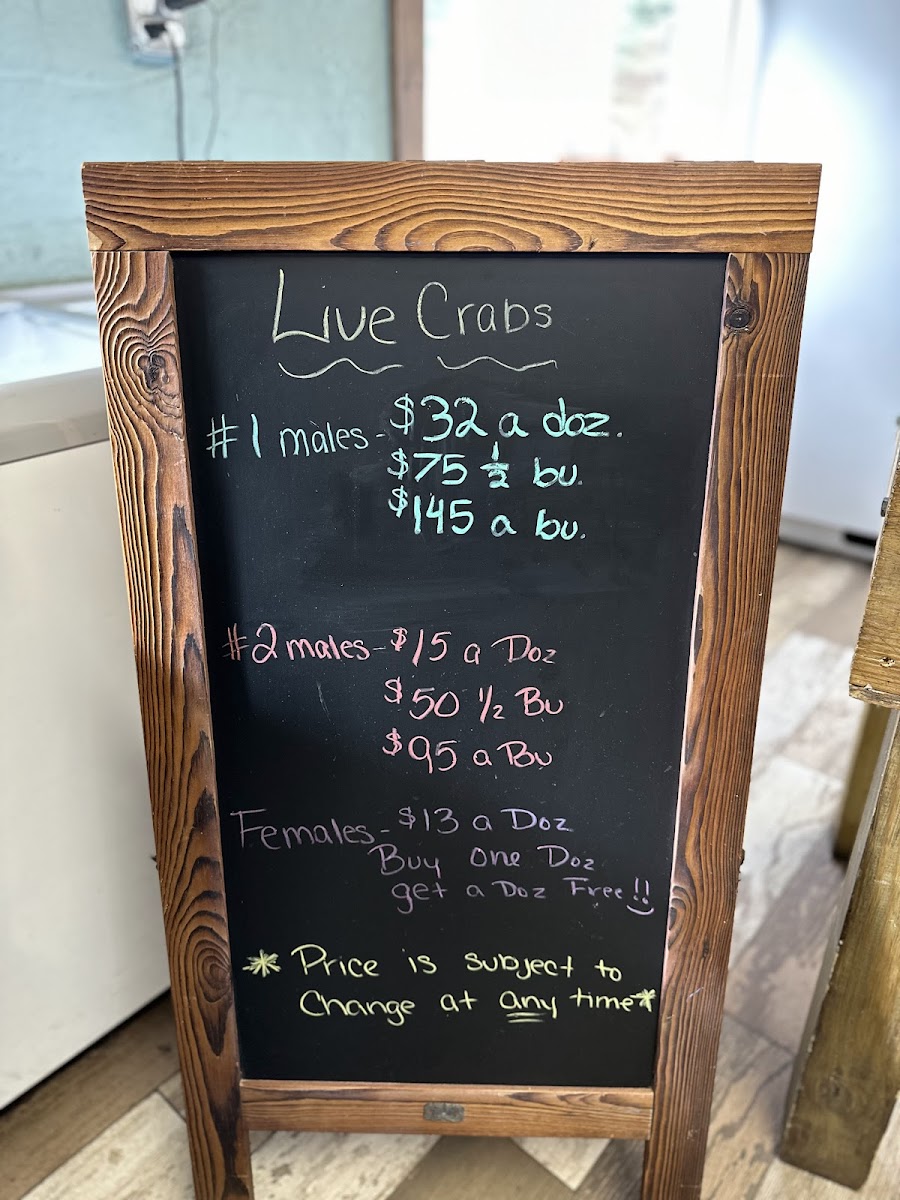 Live Crabs
#1 males - $32 a doz.
$75 ½ bu.
$145 a bu.
#2 males - $15 a Doz
$50 ½ Bu
$95 a Bu
Females - $13 a Doz
Buy one Doz
get a Doz Free!!
* Price is subject to
Change at any time*